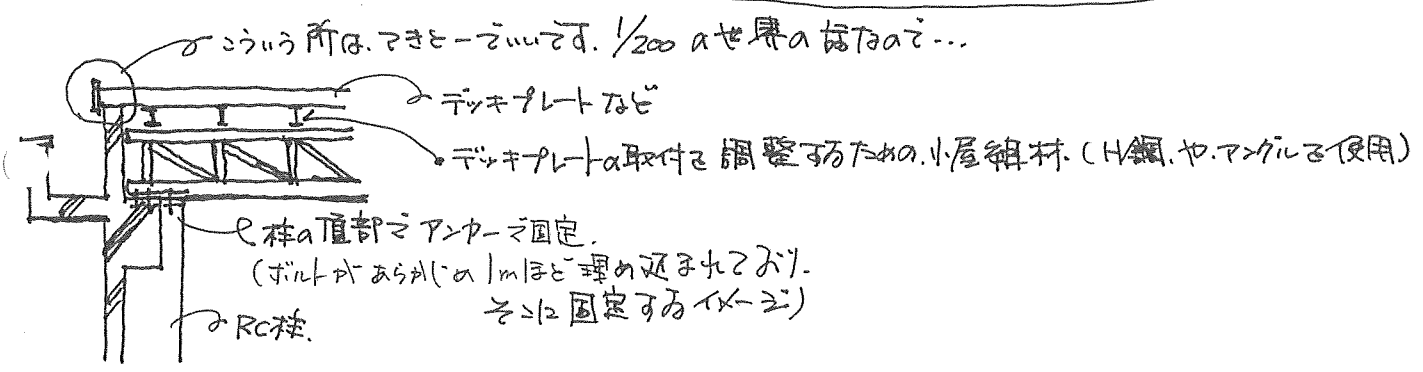 こういう所は、てきとーでいいです。1/200の世界の話なので…
デッキプレートなど
デッキプレートの取付を調整するための、小屋組材。(H鋼、や、アングルを使用)
柱の頂部でアンカーで固定。
(ボルトがあらかじめ1mほど埋め込まれており、
そこに固定するイメージ)
RC柱。